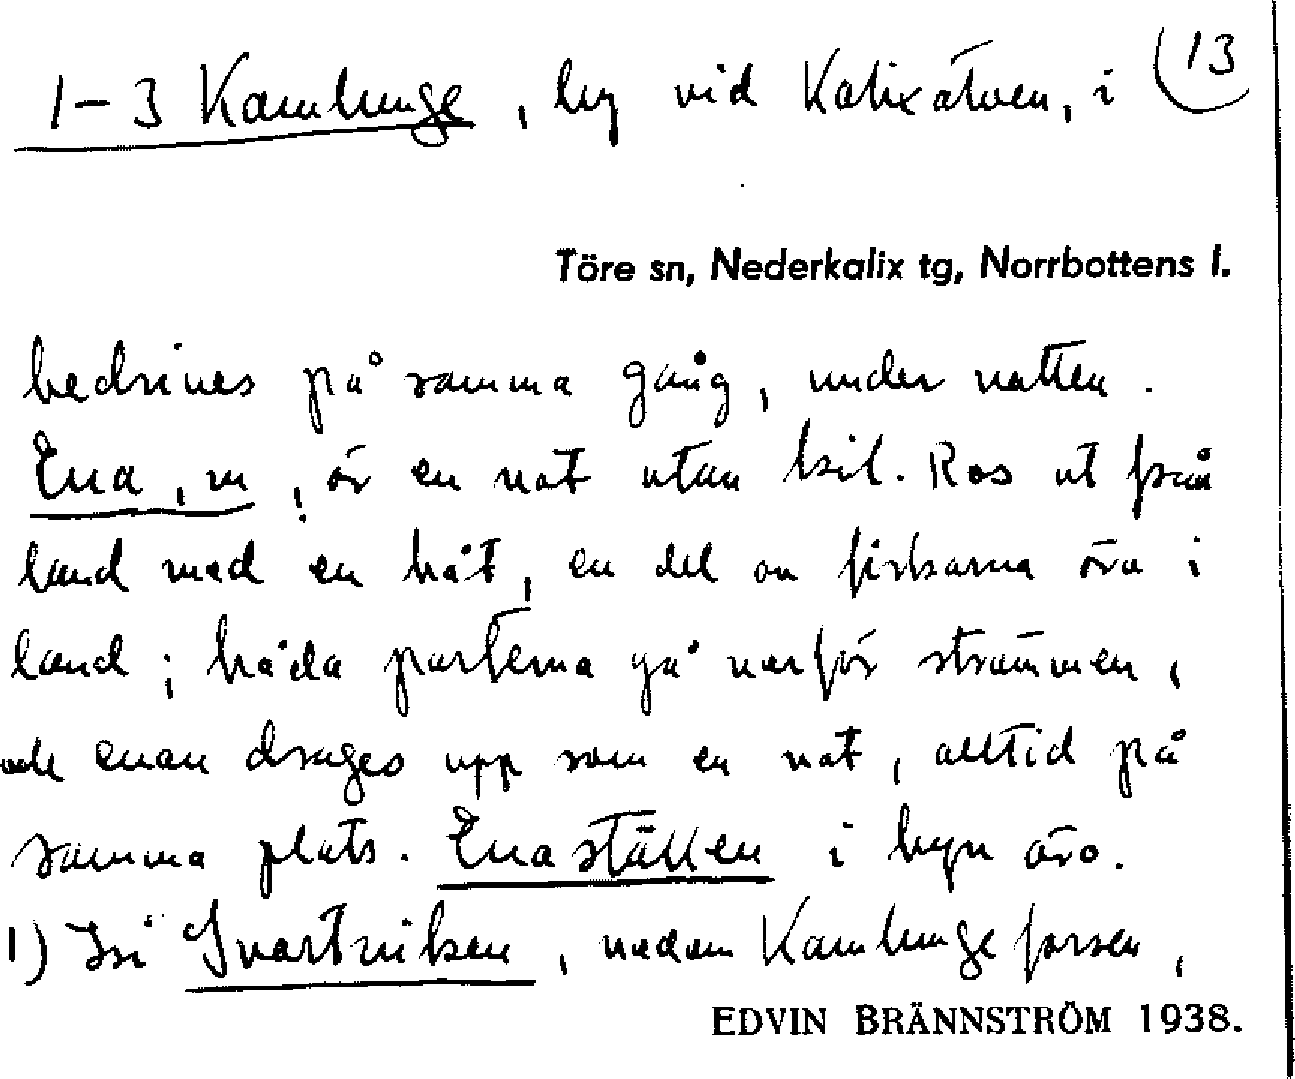 1-3 Kamlunge, by vid Kalixälven, i 13
Töre sn, Nederkalix tg, Norrbottens l.
bedrives på samma gång, under natten.
Ena, m, är en not utan kil. Ros ut från
land med en båt, en del av fiskarna äro i
land; båda parterna gå nerför strömmen,
och enan drages upp som en not, alltid på
samma plats. Enaställen i byn äro.
1) I Svartviken, nedom Kamlungeforsen,
EDVIN BRÄNNSTRÖM 1938.